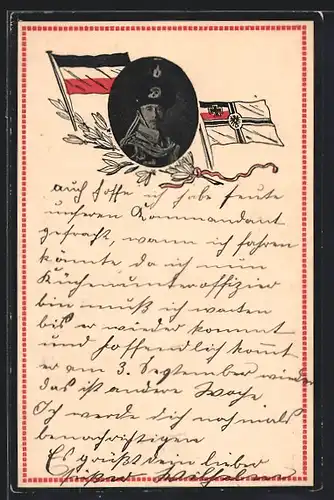 auch hoffe ich habe heute
unseren Kommandant
gefragt, wann ich fahren
könnte da ich nun
Küchenunteroffizier
bin muß ich warten
bis er wieder kommt
und hoffendlich komt
er am 3. September wieder
das ist andere Woche
Ich werde dich nochmals
benachrichtigen
Es grüßt dein lieber